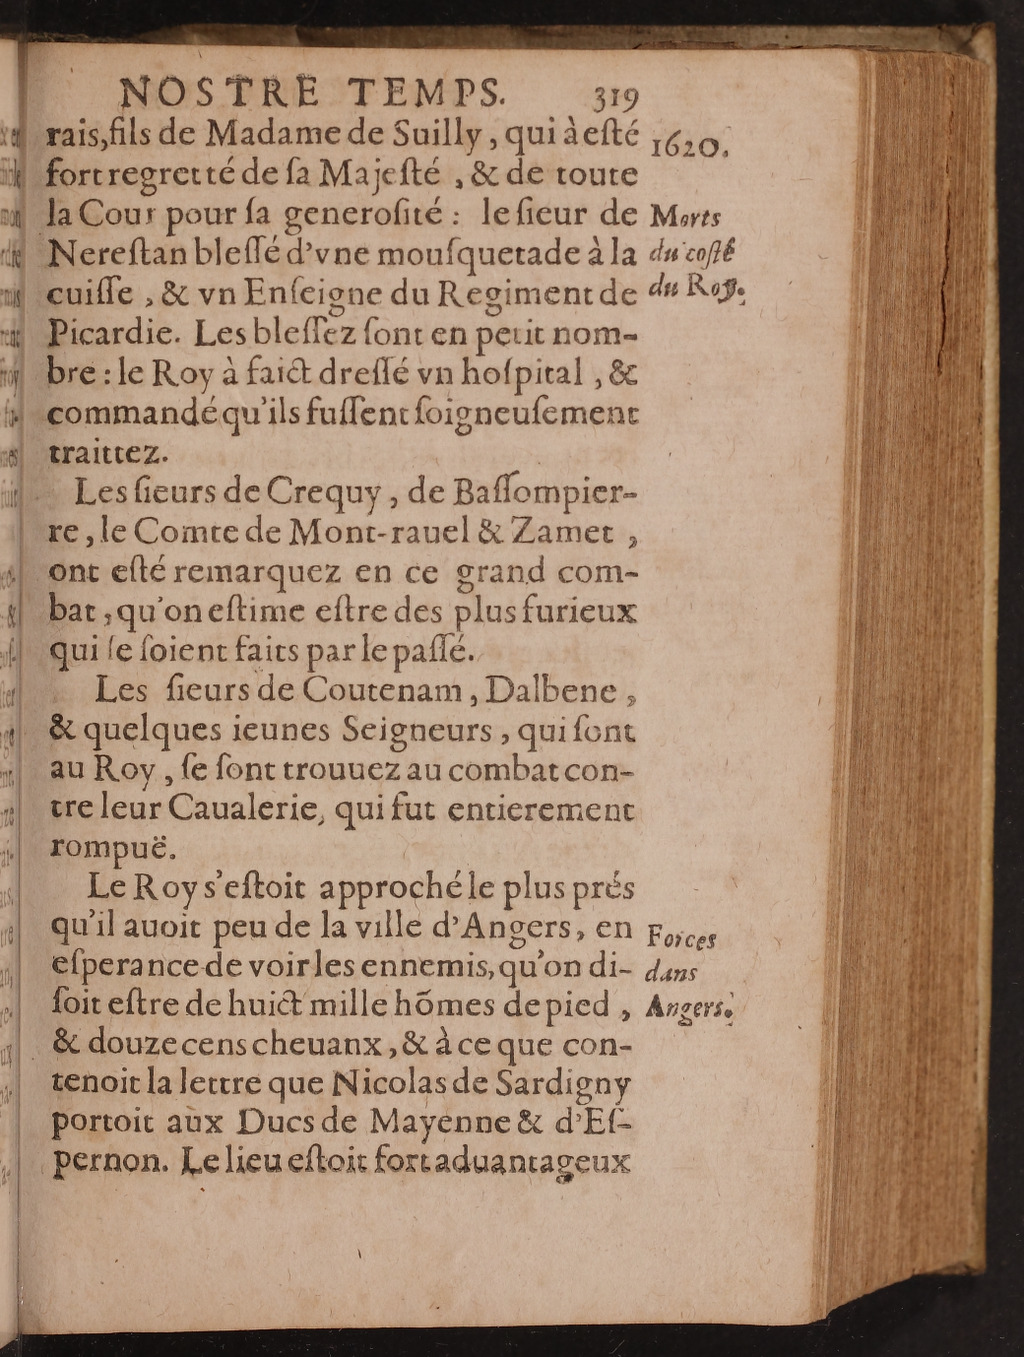 NOSTRE TEMPS. 319
rais,fils de Madame de Suilly, qui à eſté
1620.
fort regretté de ſa Majeſté, & de toute
la Cour pour ſa generoſité : le ſieur de
Morts
Nereſtan bleſſé d'vne mouſquetade à la
du coſté
cuiſſe, & vn Enſeigne du Regiment de
du Roy.
Picardie. Les bleſſez ſont en petit nom-
bre : le Roy à faict dreſſé vn hoſpital, &
commandé qu'ils fuſſent ſoigneuſement
traittez.
Les ſieurs de Crequy, de Baſſompier-
re, le Comte de Mont-rauel & Zamet,
ont eſté remarquez en ce grand com-
bat, qu'on eſtime eſtre des plus furieux
qui ſe ſoient faits par le paſſé.
Les ſieurs de Coutenam, Dalbene,
& quelques ieunes Seigneurs, qui ſont
au Roy, ſe ſont trouuez au combat con-
tre leur Caualerie, qui fut entierement
rompuë.
Le Roy s'eſtoit approché le plus prés
qu'il auoit peu de la ville d'Angers, en
Forces
eſperance de voir les ennemis, qu'on di-
dans
ſoit eſtre de huict mille hõmes de pied,
Angers.
& douze cens cheuanx, & à ce que con-
tenoit la lettre que Nicolas de Sardigny
portoit aux Ducs de Mayenne & d'Eſ-
pernon. Le lieu eſtoit fort aduantageux